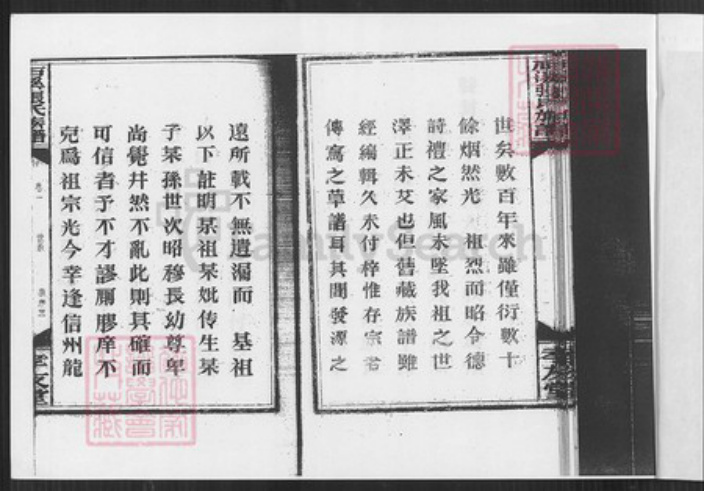 世矣數百年來雖僅衍數十
餘烟然光　祖烈而昭令德
詩禮之家風未墜我祖之世
澤正未艾也但舊藏族譜雖
經編輯久未付梓惟存宗若
傳寫之草譜耳其間發源之
遠所載不無遺漏而　基祖
以下註明某祖某妣传生某
子某孫世次昭穆長幼尊卑
尚覺井然不亂此則其確而
可信者予不才謬膺膠庠不
克為祖宗光今幸逢信州龍
張氏族譜
孝友堂
FamilySearch